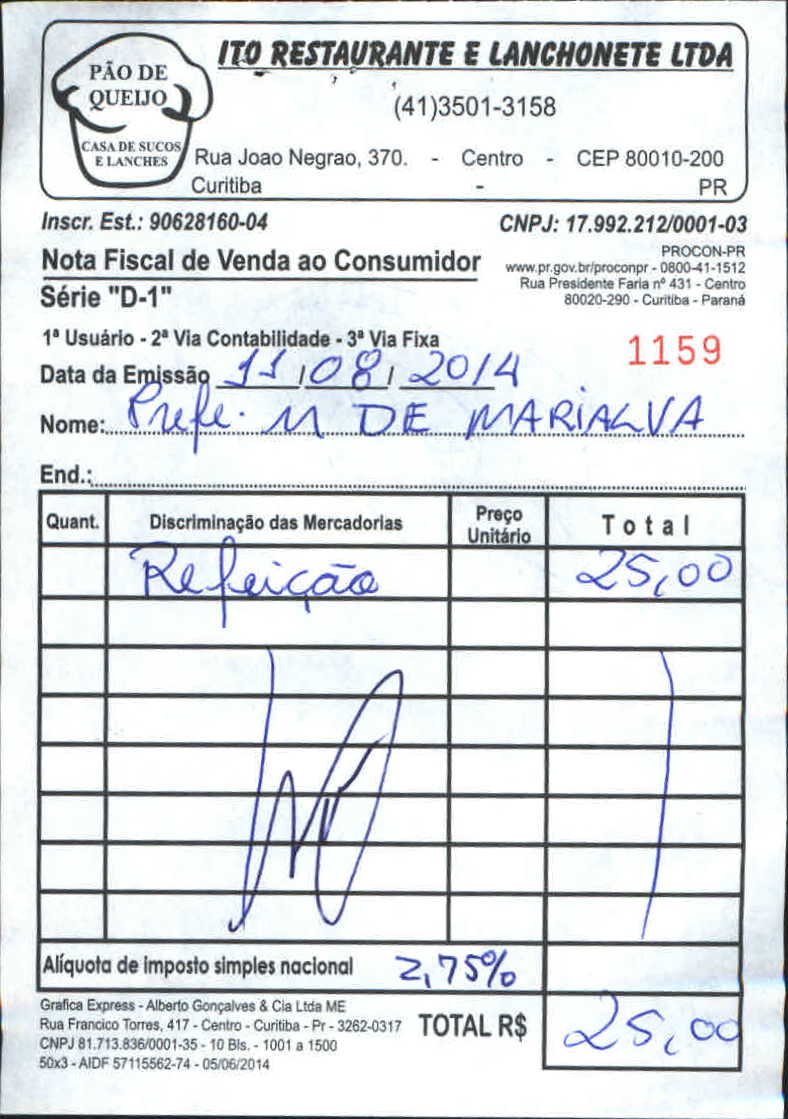 PÃO DE
QUEIJO
CASA DE SUCOS
E LANCHES
ITO RESTAURANTE E LANCHONETE LTDA
(41)3501-3158
Rua Joao Negrao, 370. - Centro - CEP 80010-200
Curitiba - PR
Inscr. Est.: 90628160-04
CNPJ: 17.992.212/0001-03
Nota Fiscal de Venda ao Consumidor
Série "D-1"
PROCON-PR
www.pr.gov.br/proconpr - 0800-41-1512
Rua Presidente Faria nº 431 - Centro
80020-290 - Curitiba - Paraná
1ª Usuário - 2ª Via Contabilidade - 3ª Via Fixa
1159
Data da Emissão 11/08/2014
Nome: Prefe. M DE MARIALVA
End.:
Quant. Discriminação das Mercadorias Preço Unitário Total
Refeição 25,00
Alíquota de imposto simples nacional 2,75%
Grafica Express - Alberto Gonçalves & Cia Ltda ME
Rua Francico Torres, 417 - Centro - Curitiba - Pr - 3262-0317
CNPJ 81.713.836/0001-35 - 10 Bls. - 1001 a 1500
50x3 - AIDF 57115562-74 - 05/06/2014
TOTAL R$ 25,00